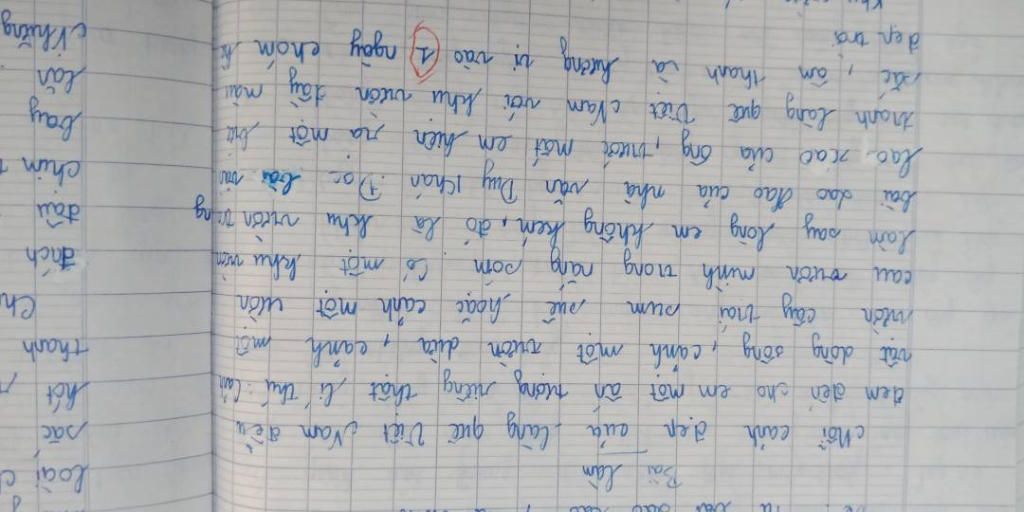 Bài làm
Mỗi cảnh đẹp của làng quê Việt Nam đều
đem đến cho em một ấn tượng riêng thật lí thú: Cảnh
vật dòng sông, cảnh một vườn dừa, cảnh một
vườn cây trái sum suê hoặc cảnh một vườn
cau vươn mình trong nắng sớm. Có một khu vườn
làm say lòng em không kém, đó là khu vườn trong
bài dao đao của nhà văn Duy Khán. Đọc bài văn
lao xao của ông, trước mắt em hiện ra một bức
tranh làng quê Việt Nam với khu vườn đầy màu
sắc, âm thanh và hương vị vào 1 ngày chớm hè
đẹp trời
loài
sắc
hót
thanh
Ch
đích
đâu
chim
bay
lần
Không